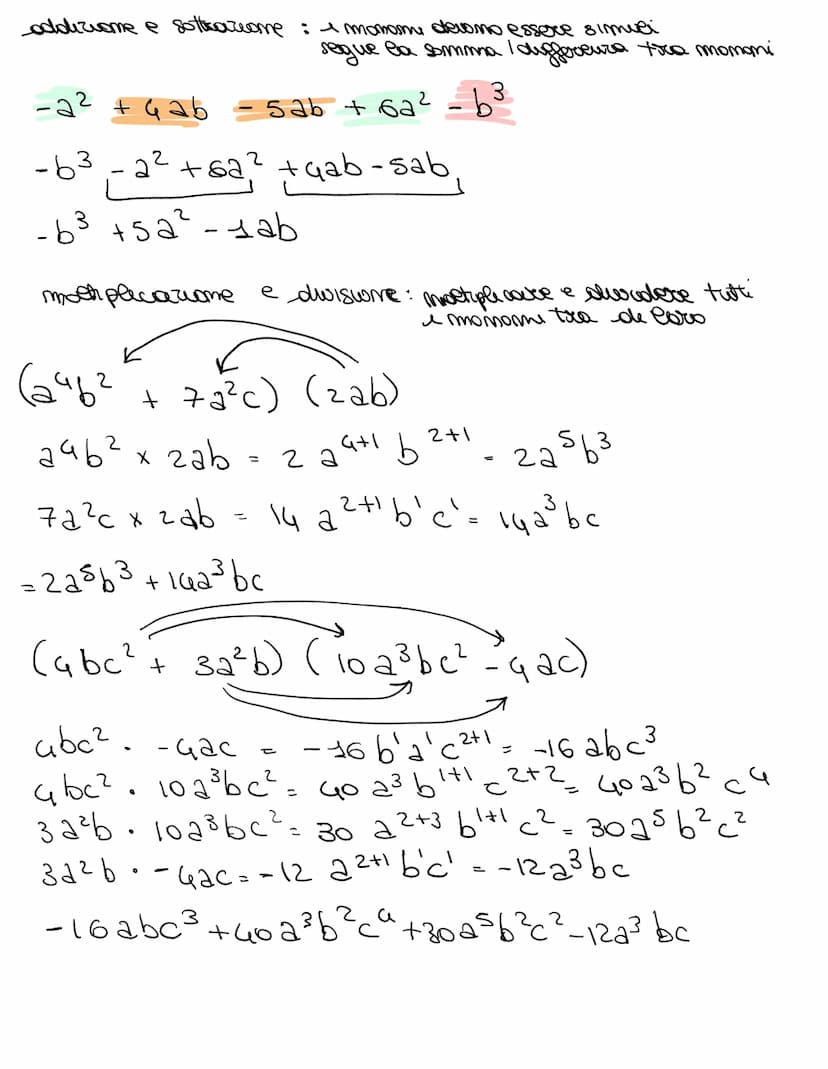 addizione e sottrazione : i monomi devono essere simili
segue la somma / differenza tra monomi
-a² + 4ab - 5ab + 6a² - b³
-b³ - a² + 6a² + 4ab - 5ab
-b³ + 5a² - 1ab
moltiplicazione e divisione : moltiplicare e dividere tutti
i monomi tra di loro
(a⁴b² + 7a²c) (2ab)
a⁴b² × 2ab = 2 a⁴⁺¹ b²⁺¹ = 2a⁵b³
7a²c × 2ab = 14 a²⁺¹ b¹c¹ = 14a³bc
= 2a⁵b³ + 14a³bc
(4bc² + 3a²b) (10a³bc² - 4ac)
4bc² · -4ac = -16 b¹a¹c²⁺¹ = -16abc³
4bc² · 10a³bc² = 40 a³ b¹⁺¹ c²⁺² = 40a³b²c⁴
3a²b · 10a³bc² = 30 a²⁺³ b¹⁺¹ c² = 30a⁵b²c²
3a²b · -4ac = -12 a²⁺¹ b¹c¹ = -12a³bc
-16abc³ + 40a³b²c⁴ + 30a⁵b²c² - 12a³bc